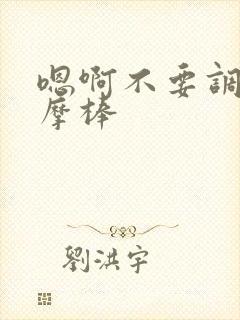 嗯啊不要調
摩棒
劉洪宇